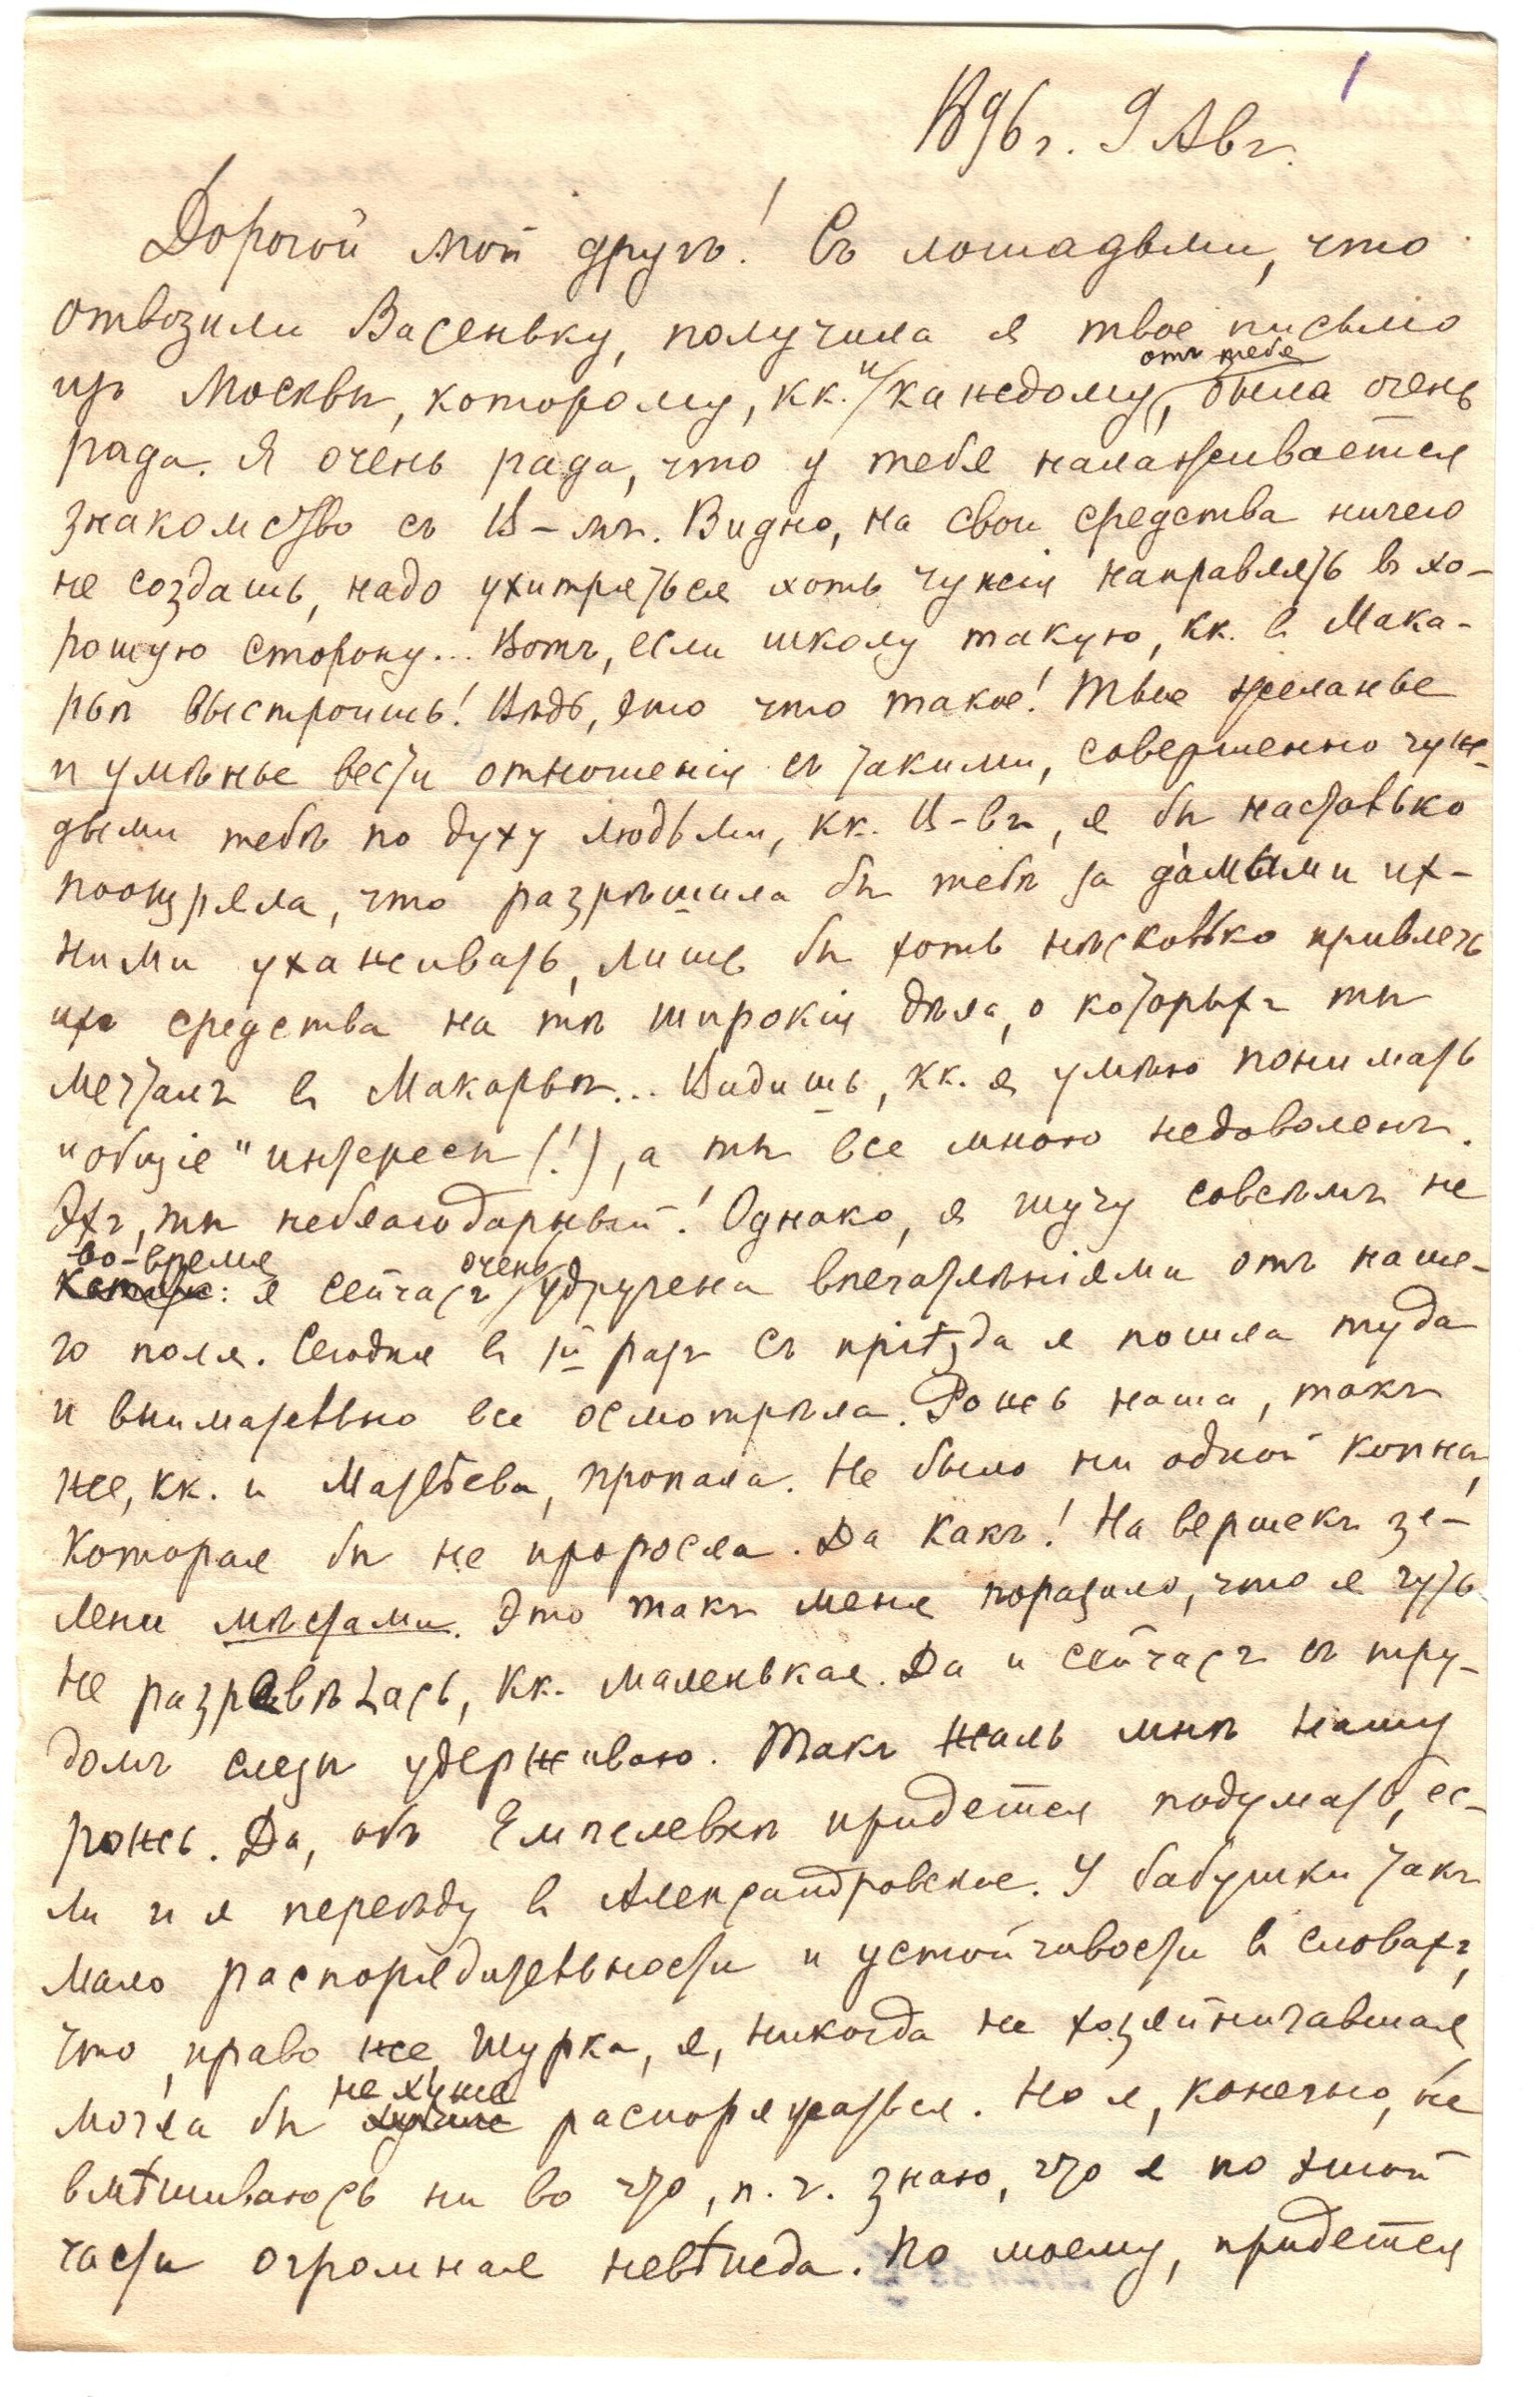 1
1896 г. 9 Авг.
Дорогой мой другъ! Съ лошадьми, что
отвозили Васеньку, получила я твое письмо
изъ Москвы, которому, кк. и каждому, отъ тебя была очень
рада. Я очень рада, что у тебя налаживается
знакомство съ Ц-мъ. Видно, на свои средства ничего
не создашь, надо ухитряться хоть чужія направлять въ хо-
рошую сторону... Вотъ, если школу такую, кк. въ Мака-
рьѣ выстроишь! Вѣдь, это что такое! Твое желанье
и умѣнье вести отношенія съ такими, совершенно чуж-
дыми тебѣ по духу людьми, кк. Ц-въ, я бы настолько
поощряла, что разрѣшила бы тебѣ за дамыми их-
ними ухаживать, лишь бы хоть нѣсколько привлечь
ихъ средства на тѣ широкія дѣла, о которыхъ ты
мечталъ въ Макарьѣ... Видишь, кк. я умѣю понимать
"общіе" интересы (!), а ты все мною недоволенъ.
Эхъ, ты неблагодарный! Однако, я шучу совсѣмъ не
во-время: я сейчасъ очень удручена впечатлѣніями отъ наше-
го поля. Сегодня въ 1й разъ съ пріѣзда я пошла туда
и внимательно все осмотрѣла. Рожь наша, такъ
же, кк. и Матвѣева, пропала. Не было ни одной копны,
которая бы не проросла. Да какъ! На вершекъ зе-
лени мѣстами. Это такъ меня поразило, что я чуть
не разревѣлась, кк. маленькая. Да и сейчасъ съ тру-
домъ слезы удерживаю. Такъ жаль мнѣ нашу
рожь. Да, объ Емпелевкѣ придется подумать, ес-
ли и я переѣду въ Александровское. У бабушки такъ
мало распорядительности и устойчивости въ словахъ,
что, право же, Шурка, я, никогда не хозяйничавшая,
могла бы не хуже распоряжаться. Но я, конечно, не
вмѣшиваюсь ни во что, п. ч. знаю, что я по этой
части огромная невѣжда. По моему, придется